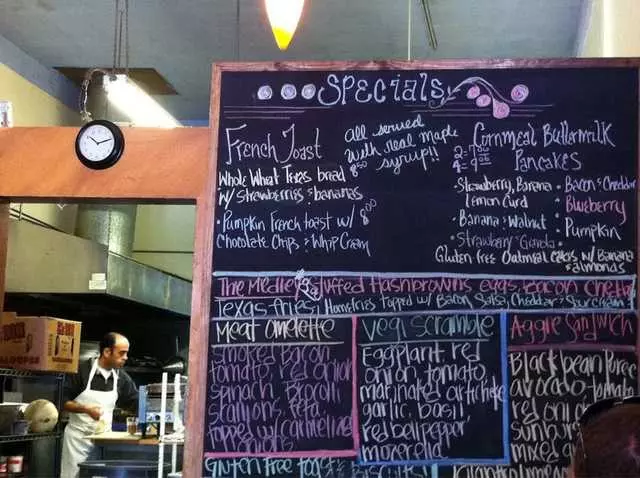 Specials
French Toast
Whole Wheat Texas bread
w/ Strawberries & bananas
8.50
Pumpkin French toast w/ 8.00
Chocolate Chips & Whip Cream
all served
with real maple
syrup!!
Cornmeal Buttermilk
Pancakes
2-7.00
Strawberry, Banana
lemon curd
Banana & Walnut
Strawberry Granola
Bacon & Cheddar
Blueberry
Pumpkin
Gluten free Oatmeal cakes w/ Banana
& almonds
Stuffed Hashbrowns, eggs, Bacon
Texas fries! Homefries topped w/ Bacon, Salsa, Cheddar & Sour cream
Meat omelette
Smoked Bacon
tomato, red onion
spinach, Brocoli
scallions, feta,
topped w/ carmelized
onions
Vegi Scramble
Eggplant, red
onion, tomato,
marinated artichoke
garlic, basil,
red bell pepper
mozerella
Aggie Sandwich
Black bean Puree
avocado-tomato
red onion
mixed
Gluten Free
Biscuits!